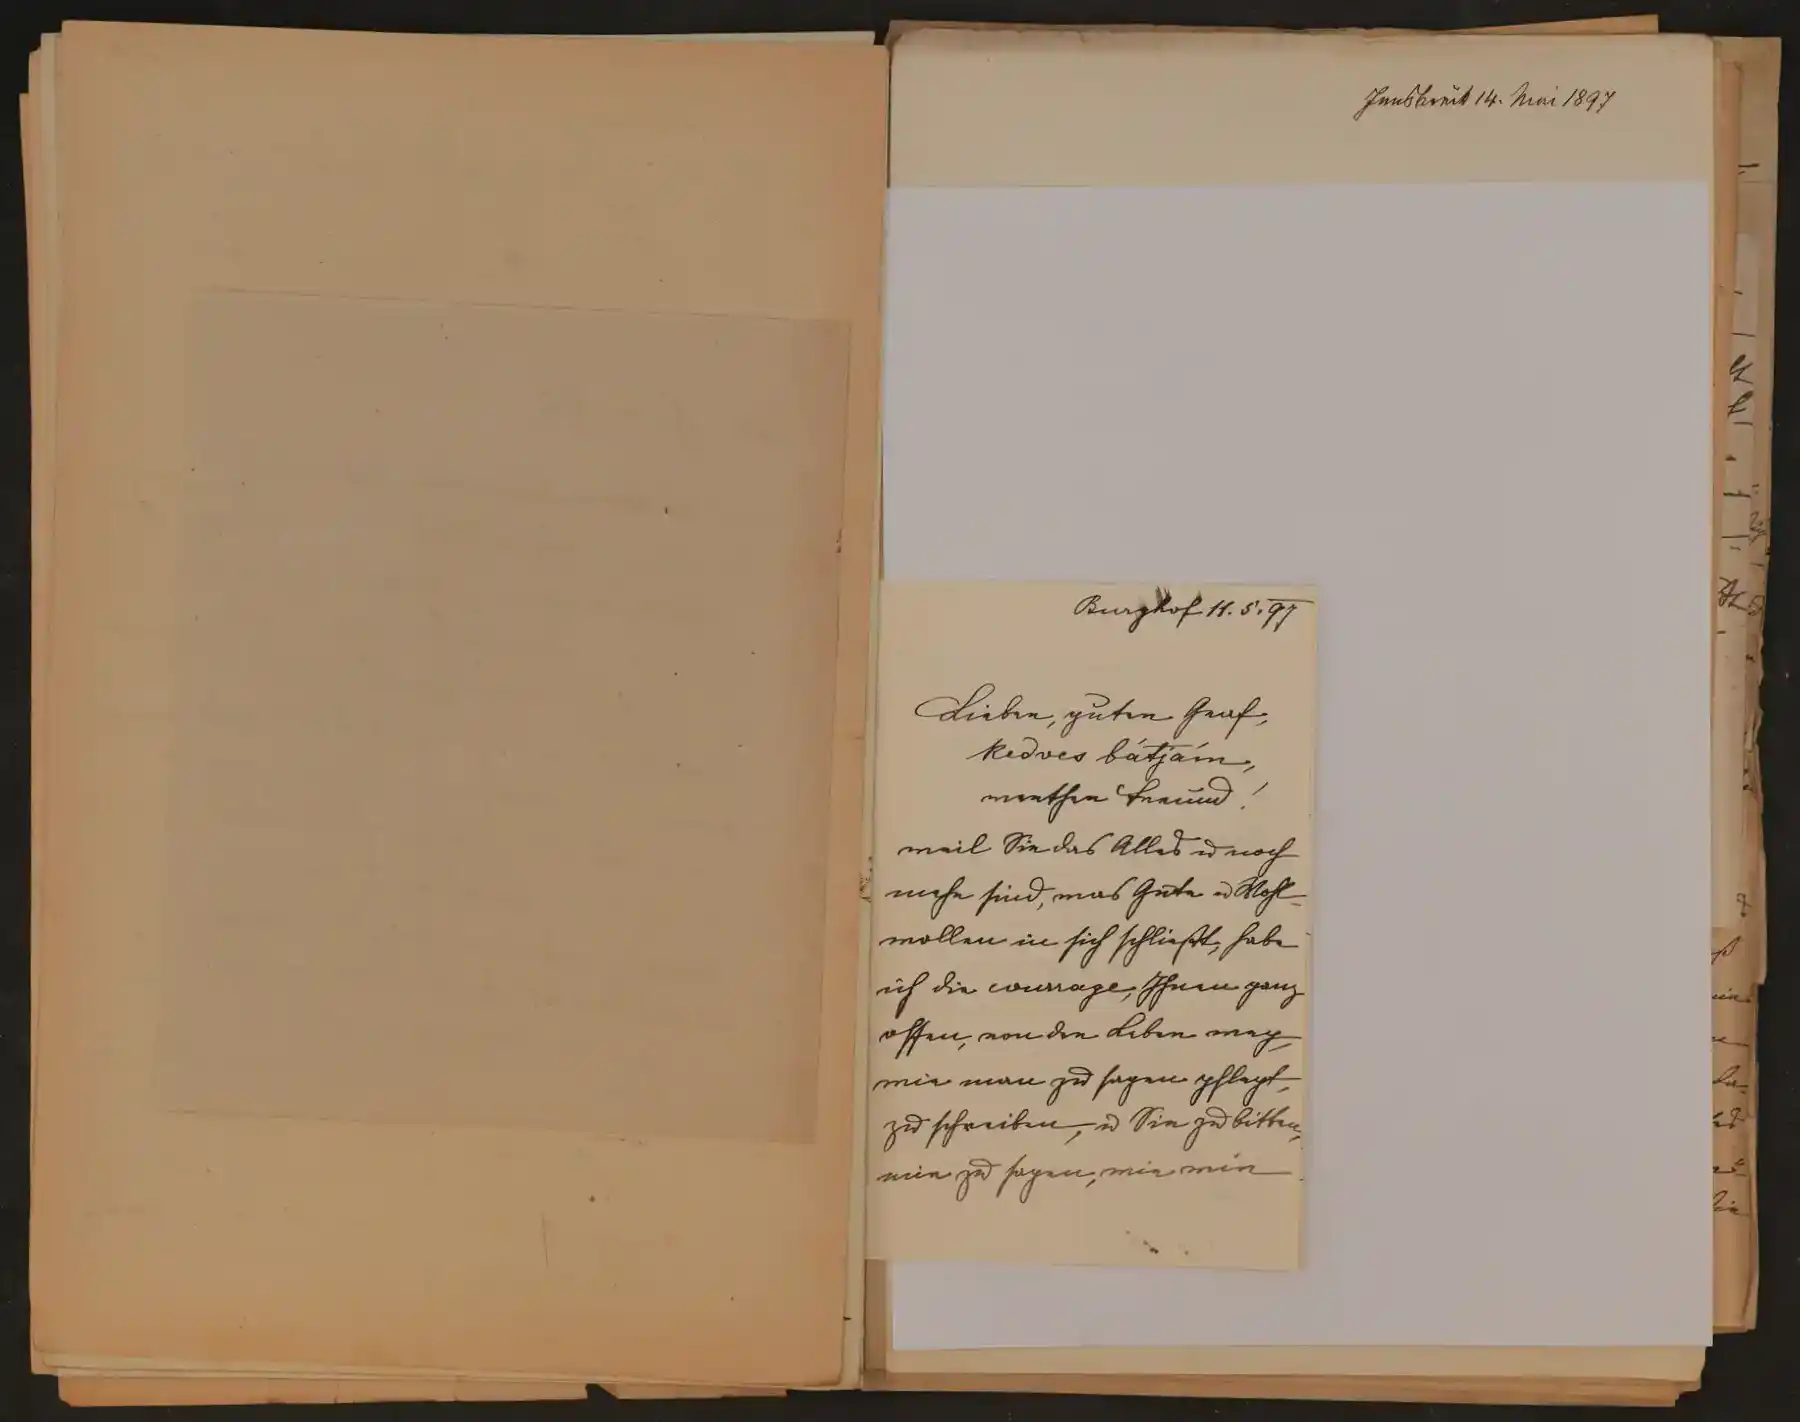 Innsbruck 14. Mai 1897
Burghof 11. 5. 97
Lieber, guter Graf,
kedves bátjám,
werther Freund!
weil Sie das Alles u noch
mehr sind, was Güte u Wohl-
wollen in sich schließt, habe
ich die courrage, Ihnen ganz
offen, von der Leber weg,
wie man zu sagen pflegt,
zu schreiben, u Sie zu bitten,
mir zu sagen, wie wir